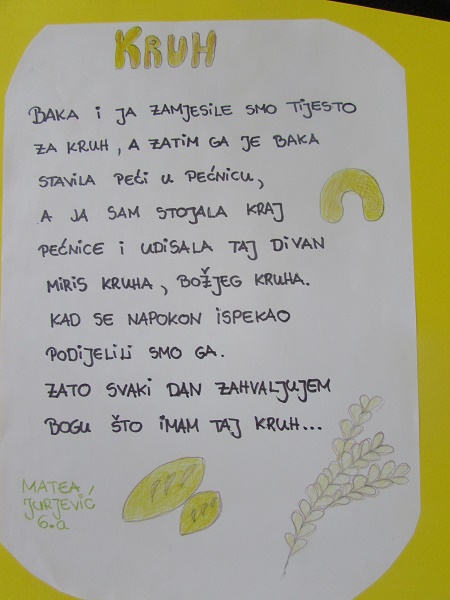 KRUH
BAKA I JA ZAMJESILE SMO TIJESTO
ZA KRUH, A ZATIM GA JE BAKA
STAVILA PEĆI U PEĆNICU,
A JA SAM STOJALA KRAJ
PEĆNICE I UDISALA TAJ DIVAN
MIRIS KRUHA, BOŽJEG KRUHA.
KAD SE NAPOKON ISPEKAO
PODIJELILI SMO GA.
ZATO SVAKI DAN ZAHVALJUJEM
BOGU ŠTO IMAM TAJ KRUH...
MATEA
JURJEVIĆ
6.a